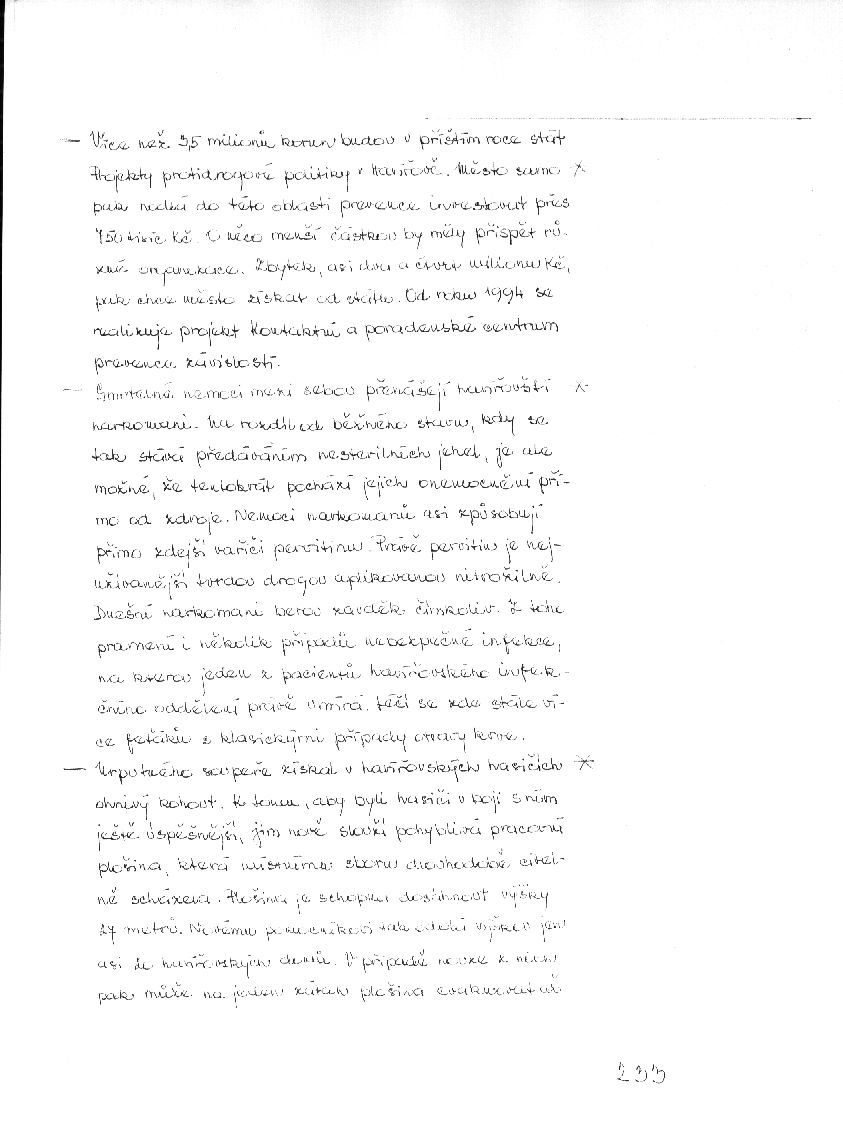 — Více než 3,5 milionů korun budou v příštím roce stát
Projekty protidrogové politiky v Havířově. Město samo *
pak hodlá do této oblasti prevence investovat přes
750 tisíc Kč. O něco menší částkou by měly přispět rů-
zné organizace. Zbytek, asi dva a čtvrt milionu Kč,
pak chce město získat od státu. Od roku 1994 se
realizuje projekt Kontaktní a poradenské centrum
prevence závislostí.
— Smrtelné nemoci mezi sebou přenášejí havířovští *
narkomani. Na rozdíl od běžného stavu, kdy se
tak stává předáváním nesterilních jehel, je ale
možné, že tentokrát pochází jejich onemocnění pří-
mo od zdroje. Nemoci narkomanů asi způsobují
přímo zdejší vařiči pervitinu. Právě pervitin je nej-
užívanější tvrdou drogou aplikovanou nitrožilně.
Dnešní narkomani berou zavděk čímkoliv. Z toho
pramení i několik případů nebezpečné infekce,
na kterou jeden z pacientů havířovského infek-
čního oddělení právě umírá. Léčí se zde stále ví-
ce feťáků s klasickými případy otravy krve.
— Urputného soupeře získal v havířovských hasičích *
ohnivý kohout. K tomu, aby byli hasiči v boji s ním
ještě úspěšnější, jim nově slouží pohyblivá pracovní
plošina, která místnímu sboru dlouhodobě citel-
ně scházela. Plošina je schopna dosáhnout výšky
27 metrů. Novému pomocníkovi tak odolá výškou jen
asi havířovských domů. V případě nouze z nich
pak může na jeden zátah plošina evakuovat až
233